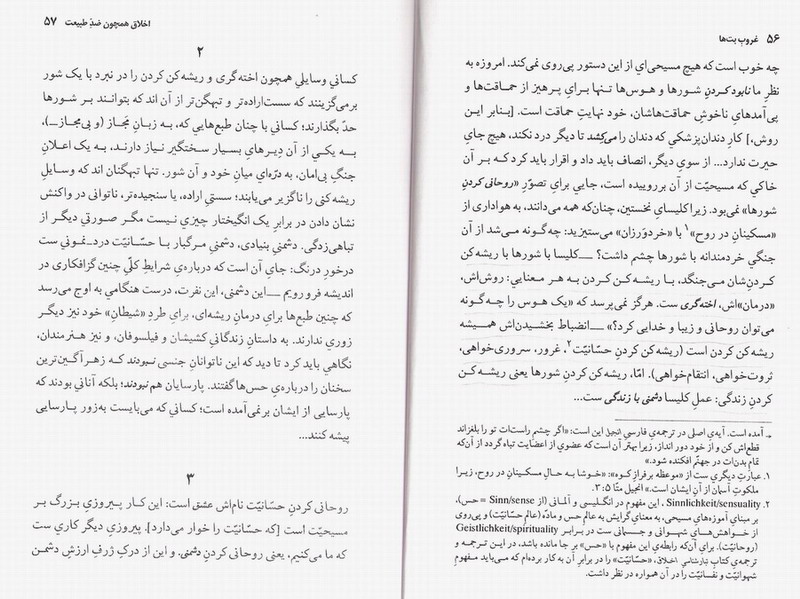 ۵۶ غروبِ بت‌ها
چه خوب است که هیچ مسیحی‌ای از این دستور پی‌روی نمی‌کند. امروزه به
نظرِ ما نابود کردنِ شورها و هوس‌ها تنها برایِ پرهیز از حماقت‌ها و
پی‌آمدهایِ ناخوشِ حماقت‌هاشان، خود نهایتِ حماقت است. [بنابر این
روش،] کارِ دندان‌پزشکی که دندان را می‌کشد تا دیگر درد نکند، هیچ جایِ
حیرت ندارد... از سویِ دیگر، انصاف باید داد و اقرار باید کرد که بر آن
خاکی که مسیحیّت از آن برروییده است، جایی برایِ تصوّرِ «روحانی کردنِ
شورها» نمی‌بود. زیرا کلیسایِ نخستین، چنان‌که همه می‌دانند، به هواداری از
«مسکینانِ در روح»۱ با «خردوَرزان» می‌ستیزید: چه‌گونه می‌شد از آن
جنگی خردمندانه با شورها چشم داشت؟ ــ کلیسا با شورها با ریشه‌کن
کردن‌شان می‌جنگد، با ریشه‌کن کردن به هر معنایی: روش‌اش،
«درمان»‌اش، اخته‌گری ست. هرگز نمی‌پرسد که «یک هوس را چه‌گونه
می‌توان روحانی و زیبا و خدایی کرد؟» ــ انضباط بخشیدن‌اش همیشه
ریشه‌کن کردن است (ریشه‌کن کردنِ حسّانیّت۲، غرور، سروری‌خواهی،
ثروت‌خواهی، انتقام‌خواهی). امّا، ریشه‌کن کردنِ شورها یعنی ریشه‌کن
کردنِ زندگی: عملِ کلیسا دشمنی با زندگی ست...
آمده است. آیه‌ی اصلی در ترجمه‌ی فارسیِ انجیل این است: «اگر چشمِ راست‌ات تو را بلغزاند
قطع‌اش کن و از خود دور انداز، زیرا بهتر آن است که عضوی از اعضایت تباه گردد از آن‌که
تمامِ بدن‌ات در جهنّم افکنده شود.»
۱. عبارتِ دیگری ست از «موعظه بر فرازِ کوه»: «خوشا به حالِ مسکینانِ در روح، زیرا
ملکوتِ آسمان از آنِ ایشان است.» انجیل متّا ۵: ۳.
۲. Sinnlichkeit/sensuality ، این مفهوم در انگلیسی و آلمانی (از Sinn/sense = حس)،
بر مبنایِ آموزه‌هایِ مسیحی، به معنایِ گرایش به عالمِ حس و مادّه (عالمِ حسّانیّت) و پی‌روی
از خواهش‌هایِ شهوانی و جسمانی ست در برابرِ Geistlichkeit/spirituality
(روحانیّت). برایِ آن‌که رابطه‌یِ این مفهوم با «حس» بر جا مانده باشد، در این ترجمه و
ترجمه‌ی کتابِ تبارشناسیِ اخلاق، «حسّانیّت» را در برابرِ آن به کار برده‌ام که می‌باید مفهومِ
شهوانیّت و نفسانیّت را در آن همواره در نظر داشت.
اخلاق همچون ضدِّ طبیعت ۵۷
۲
کسانی وسایلی همچون اخته‌گری و ریشه‌کن کردن را در نبرد با یک شور
برمی‌گزینند که سست‌اراده‌تر و تبهگن‌تر از آن اند که بتوانند بر شورها
حدّ بگذارند؛ کسانی با چنان طبع‌هایی که، به زبانِ مجاز (و بی‌مجاز ــ)،
به یکی از آن دِیرهایِ بسیار سختگیر نیاز دارند، به یک اعلانِ
جنگِ بی‌امان، به درّه‌ای میانِ خود و آن شور. تنها تبهگنان اند که وسایلِ
ریشه‌کنی را ناگزیر می‌یابند؛ سستیِ اراده، یا سنجیده‌تر، ناتوانی در واکنش
نشان دادن در برابرِ یک انگیختار چیزی نیست مگر صورتی دیگر از
تباهی‌زدگی. دشمنیِ بنیادی، دشمنیِ مرگبار با حسّانیّت دردـنمونی ست
درخورِ درنگ: جایِ آن است که درباره‌یِ شرایطِ کلّیِ چنین گزافکاری در
اندیشه فرو رویم ــ این دشمنی، این نفرت، درست هنگامی به اوج می‌رسد
که چنین طبع‌ها برایِ درمانِ ریشه‌ای، برایِ طردِ «شیطانِ» خود نیز دیگر
زوری ندارند. به داستانِ زندگانیِ کشیشان و فیلسوفان، و نیز هنرمندان،
نگاهی باید کرد تا دید که این ناتوانانِ جنسی نبودند که زهرآگین‌ترین
سخنان را درباره‌یِ حس‌ها گفتند. پارسایان هم نبودند؛ بلکه آنانی بودند که
پارسایی از ایشان برنمی‌آمده است؛ کسانی که می‌بایست به‌زور پارسایی
پیشه کنند...
۳
روحانی کردنِ حسّانیّت نام‌اش عشق است: این کار پیروزیِ بزرگ بر
مسیحیّت است [که حسّانیّت را خوار می‌دارد]. پیروزیِ دیگر کاری ست
که ما می‌کنیم، یعنی روحانی کردنِ دشمنی. و این از درکِ ژرفِ ارزشِ دشمن